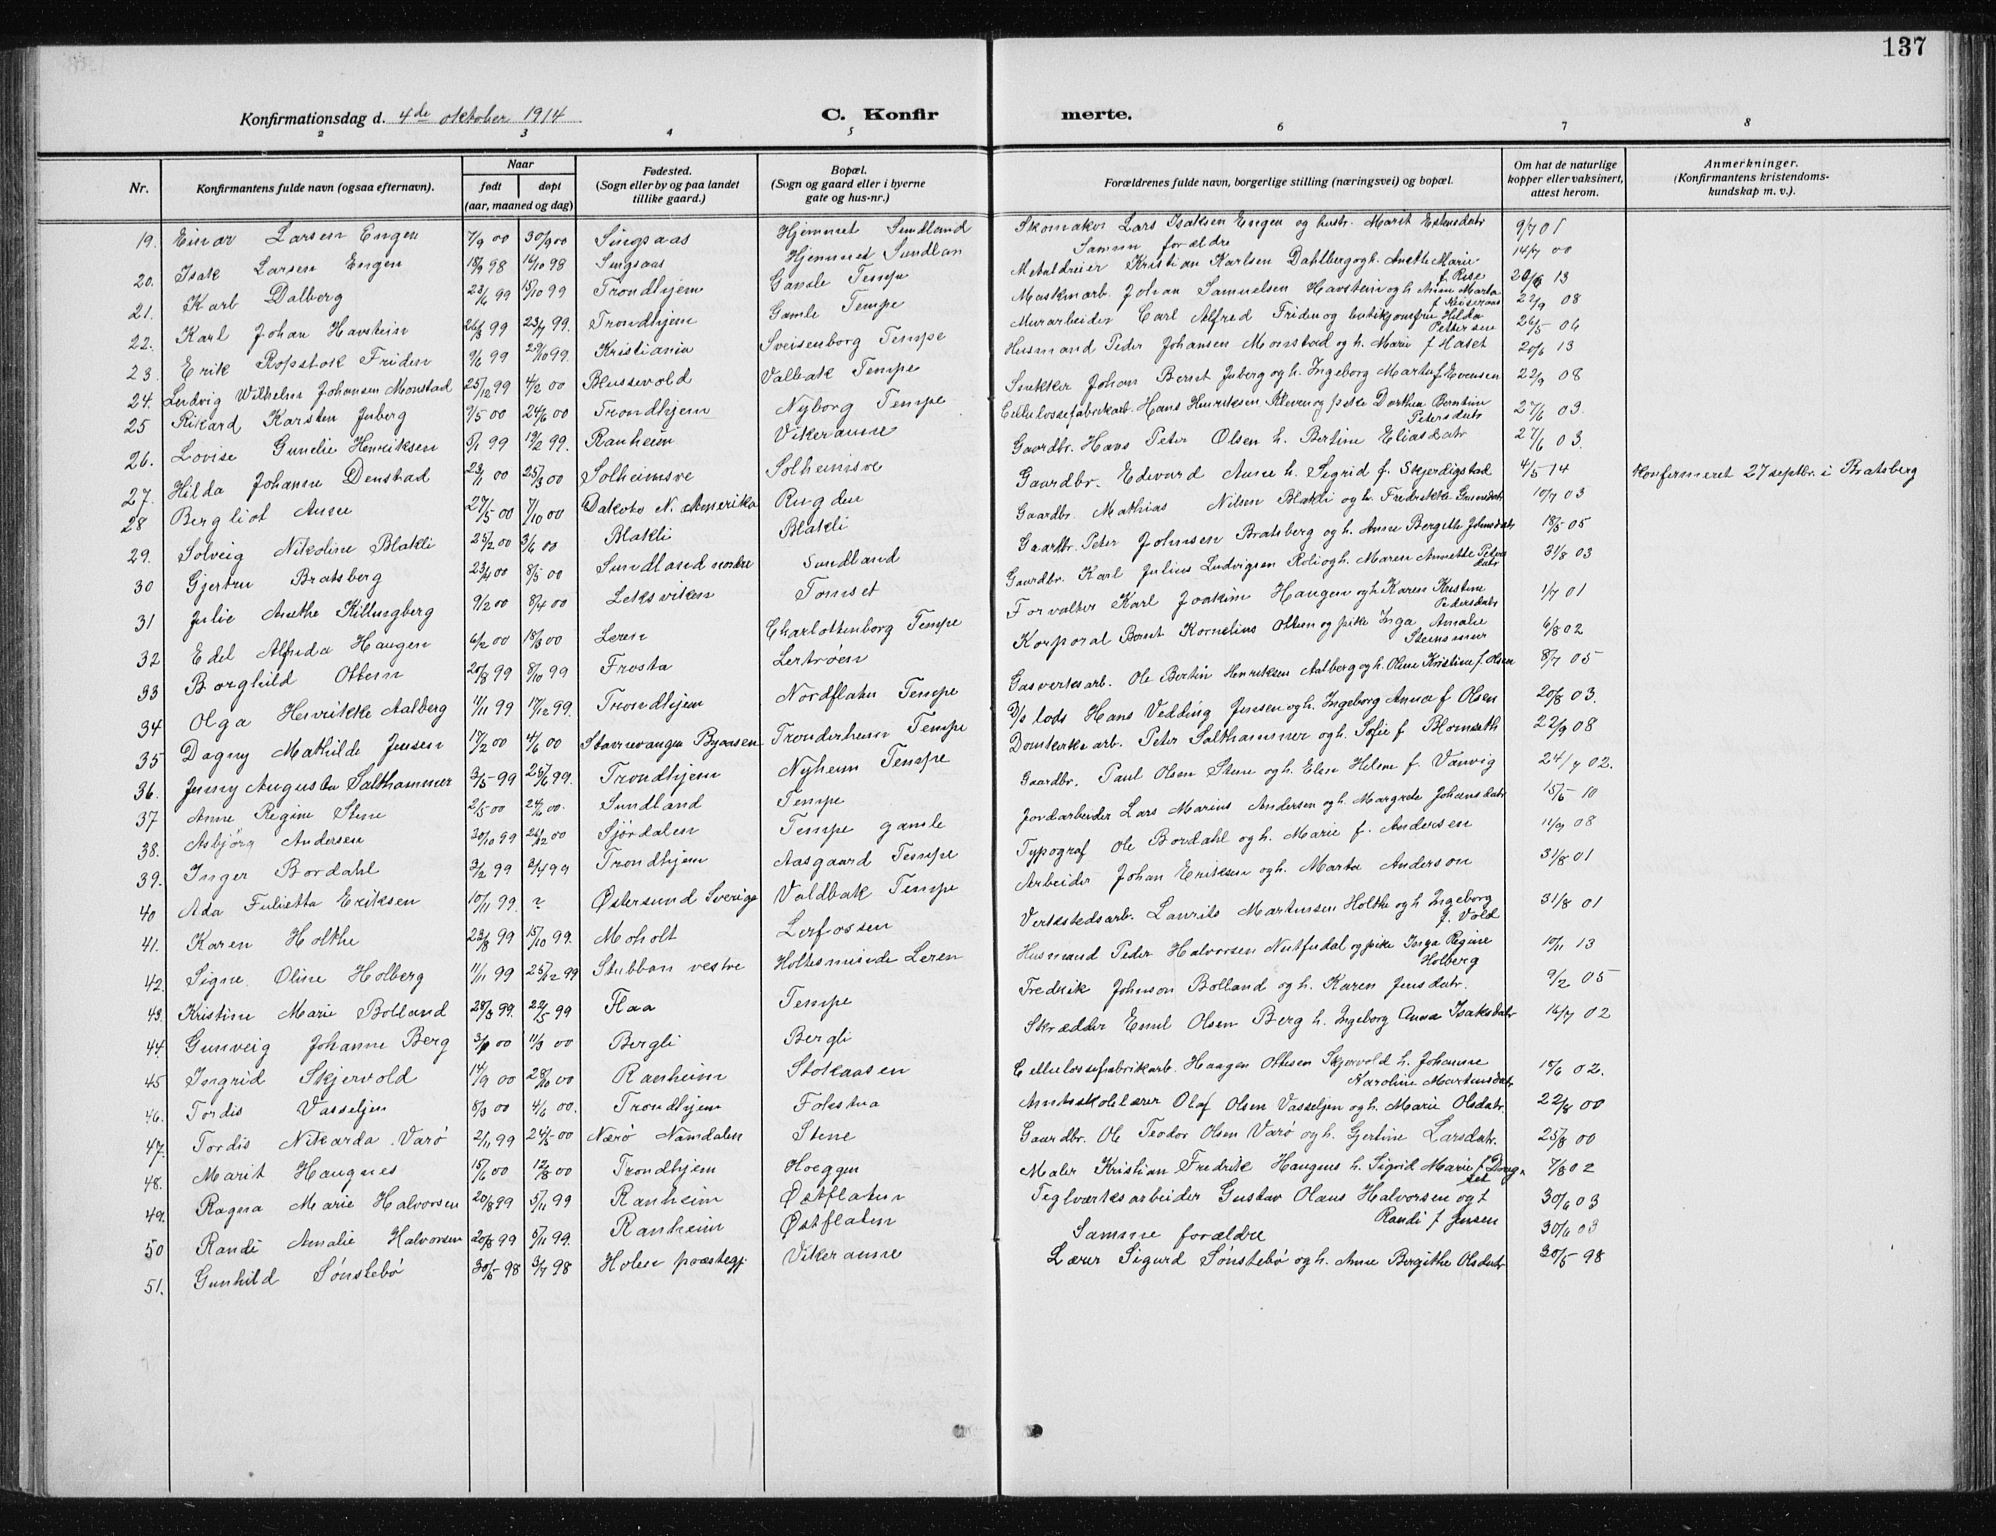 137
Konfirmationsdag d. 4de oktober 1914
C. Konfirmerte.
2 3 4 5 6 7 8
Nr. Konfirmantens fulde navn (ogsaa efternavn). Naar født døpt (aar, maaned og dag) Fødested. (Sogn eller by og paa landet tillike gaard.) Bopæl. (Sogn og gaard eller i byerne gate og hus-nr.) Forældrenes fulde navn, borgerlige stilling (næringsvei) og bopæl. Om hat de naturlige kopper eller vaksinert, attest herom. Anmerkninger. (Konfirmantens kristendomskundskap m. v.).
19. Einar Larsen Engen 7/9 00 30/9 00 Singsaas Hjemmet Sundland Skomaker Lars Isaksen Engen og hustr. Marit Estensdatr 9/7 01
20. Isak Larsen Engen 18/9 98 16/10 98 Singsaas Hjemmet Sundlan Samm forældre 14/7 00
21. Karl Dalberg 23/6 99 15/10 99 Trondhjem Gamle Tempe Metaldreier Kristian Karlsen Dahlberg og h. Anette Marie f. Rise 20/6 13
22. Karl Johan Havstein 26/3 99 23/7 99. Trondhjem Gamle Tempe Maskinarb. Johan Samuelsen Havstein og h. Anne Marta 22/9 08
23. Erik Ropstok Friden 9/6 99 29/10 99. Kristiania Sveisenborg Tempe Murarbeider Carl Alfred Friden og butikjomfru Hilda Pettersen 26/5 06
24. Ludvig Wilhelm Johansen Monstad 25/12 99 4/2 00 Blussevold Valbak Tempe Husmand Peder Johansen Monstad og h. Marie f Haset 20/6 13
25 Rikard Karsten Juberg 7/5 00 24/6 00 Trondhjem Nyborg Tempe Snekker Johan Bernt Juberg og h. Ingeborg Marta f. Evensen 22/9 08
26. Lovise Gunelie Henriksen 5/1 99 19/2 99. Ranheim Vikeraune Cellulossefabrikarb. Hans Henriksen Kleven og pike Dorthea Berntine Petersdatr 27/6 03.
27. Hilda Johanne Denstad 23/1 00 25/3 00 Solheimsve Solheimsve Gaardbr. Hans Peter Olsen h. Bertine Eliasdatr 27/6 03.
28 Bergliot Aune 27/5 00 7/10 00 Dakota N. Amerika Rugden Gaardbr. Edevard Aune h. Sigrid f. Skjerdigstad 4/5 14 Konfermeret 27 septbr. i Bratsberg
29. Solveig Nikoline Blakli 25/2 00 3/6 00 Blakli Blakli Gaardbr. Mathias Nilsen Blakli og h. Fredrikke Gunesdatr 10/7 03
30 Gjertru Bratsberg 23/4 00 8/5 00 Sundland nordre Sundland Gaardbr. Peter Johnsen Bratsberg og h. Anne Bergitte Johnsdatr 18/5 05
31 Julie Anethe Killingberg 9/2 00 8/4 00 Leksviken Tomset Gaardbr. Karl Julius Ludvigsen Roli og h. Maren Annette Petersdatr 31/8 03
32 Edel Alfrida Haugen 6/2 00 18/3 00 Leren Charlottenborg Tempe Forvalter Karl Joakim Haugen og h. Karen Kristine Pedersdatr 1/7 01
33 Borghild Ottem 20/8 99 8/10 99 Frosta Lertrøen Korporal Bernt Kornelius Ottem og pike Inga Amalie 6/8 02
34 Olga Henrikke Aalberg 11/11 99 17/12 99. Trondhjem Nordflaten Tempe Gasverksarb. Ole Bertin Henriksen Aalberg og h. Oline Kristine f. Olsen 8/7 05
35 Dagny Mathilde Jensen 17/2 00 4/6 00 Stavnevangen Byaasen Tronderheim Tempe lods Hans Vedding Jensen og h. Ingeborg Anna f Olsen 20/8 03.
36. Jenny Augusta Salthammer 3/5 99 25/6 99. Trondhjem Nyheim Tempe Domkirkearb. Peter Salthammer og h. Sofie f Blomseth 22/9 08
37 Anne Regine Stene 2/5 00 24/6 00. Sundland Tempe Gaardbr. Paul Olsen Stene og h. Elen Helene f. Vanvig 24/7 02.
38. Asbjørg Andersen 30/10 99 26/12 00 Sjørdalen Tempe gamle Jordarbeider Lars Marius Andersen og h. Margrete Johansdatr 15/5 10
39. Inger Bordahl 3/2 99 3/4 99 Trondhjem Aasgaard Tempe Typograf Ole Bordahl og h. Marie f. Andersen 11/9 08
40 Ada Julietta Eriksen 10/11 99. ? Østersund Sverige Valdbak Tempe Arbeider Johan Eriksen og h. Marta Anderson 31/8 01
41. Karen Holthe 23/8 99 15/10 99. Moholt Lerfossen Verkstedsarb. Laurits Martinsen Holthe og h Ingeborg f. Vold 31/8 01
42. Signe Oline Holberg 11/11 99 25/12 99 Stubban vestre Holtesminde Leren Husmand Peder Halvorsen Nutfudal og pike Inga Regine Holberg 10/11 13
43. Kristine Marie Bolland 28/3 99. 22/5 99 Flaa Tempe Fredrik Johnson Bolland og h. Karen Jensdatr. 9/2 05
44. Gunveig Johanne Berg 3/1 00 11/3 00 Bergli Bergli Skrædder Emil Olsen Berg h. Ingeborg Anna Isaksdatr 16/7 02
45 Ingrid Skjervold 14/9 00 28/10 00 Ranheim Stokaasen Cellulossefabrikarb. Haagen Ottesen Skjervold h. Johanne Karoline Martinsdatr 18/6 02.
46. Tordis Vasseljen 8/3 00 4/6 00. Trondhjem Folestua Amtsskolelærer Olaf Olsen Vasseljen og h. Marie Olsdatr. 22/8 00
47. Tordis Nikarda Varø 2/11 99 24/5 00 Nærø Namdalen Stene Gaardbr. Ole Teodor Olsen Varø og h. Gjertine Larsdatr. 25/8 00
48. Marit Haugnes 15/6 00 12/8 00 Trondhjem Hoeggen Maler Kristian Fredrik Haugnes h. Sigrid Marie f. 7/8 02
49. Ragna Marie Halvorsen 20/8 99 5/11 99 Ranheim Østflaten Teglværksarbeider Gustav Olaus Halvorsen og Randi f Jensen 30/6 03
50 Randi Amalie Halvorsen 20/8 99 5/11 99. Ranheim Østflaten Samme forældre 30/6 03
51. Gunhild Sønstebø 30/5 98 3/7 98 Holen præstegj Vikeraune Lærer Sigurd Sønstebø og h. Anne Bergithe Olsdatr 30/5 98